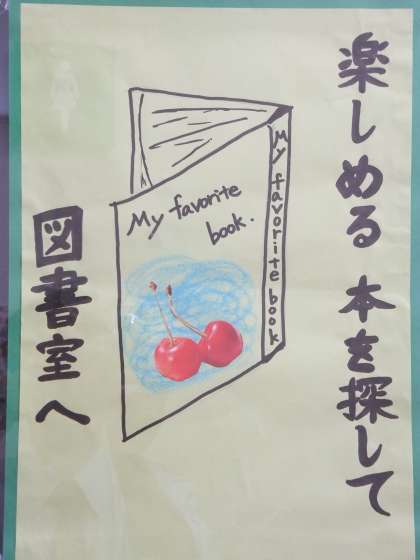 楽しめる 本を探して
図書室へ
My favorite
book.
My favorite book